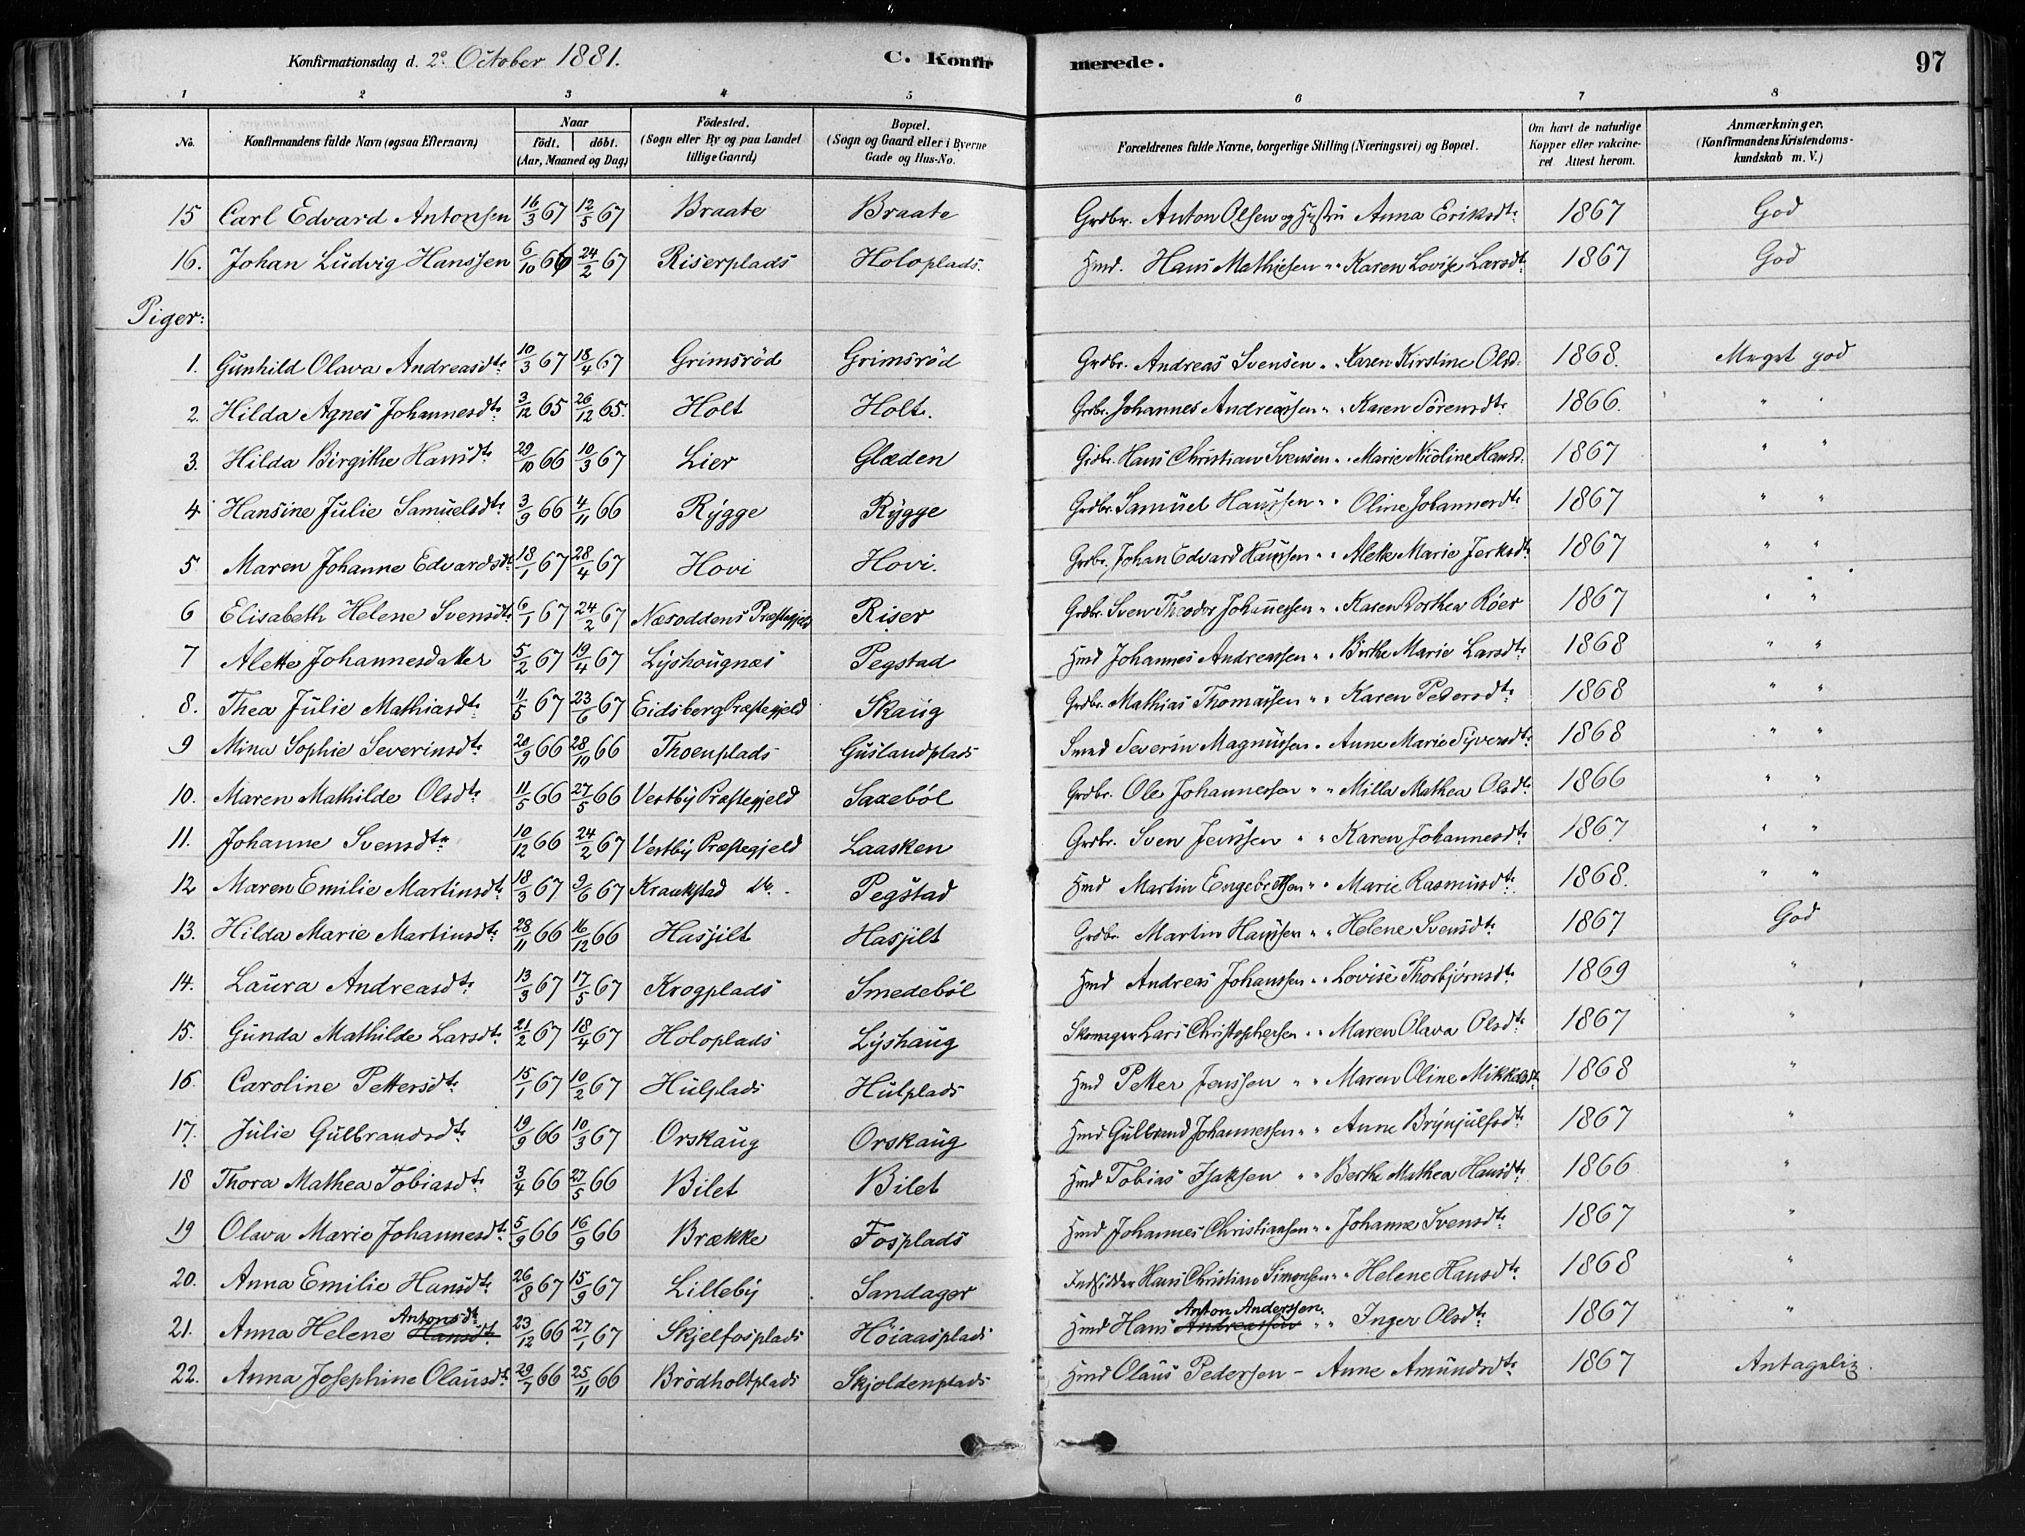 Konfirmationsdag d. 2º October 1881. C. Konfirmerede. 97
1 2 3 4 5 6 7 8
No. Konfirmandens fulde Navn (ogsaa Efternavn) Naar født. døbt. (Aar, Maaned og Dag) Fødested. (Sogn eller By og paa Landet tillige Gaard) Bopæl. (Sogn og Gaard eller i Byerne Gade og Hus-No. Forældrenes fulde Navne, borgerlige Stilling (Næringsvei) og Bopæl. Om havt de naturlige Kopper eller vakcineret Attest herom. Anmærkninger. (Konfirmandens Kristendomskundskab m. V.)
15 Carl Edvard Antonsen 16/3 67 12/5 67 Braate Braate Grdbr. Anton Olsen og Hustru Anna Eriksdtr 1867 God
16. Johan Ludvig Hanssen 6/10 66 24/2 67 Riserplads Holoplads. Hmd. Hans Mathiesen " " Karen Lovise Larsdtr 1867 God
Piger:
1. Gunhild Olava Andreasdtr 10/3 67 18/4 67 Grimsrød Grimsrød Grdbr. Andreas Svensen " " Karen Kirstine Olsd. 1868. Meget god
2. Hilda Agnes Johannesdtr 3/12 65 26/12 65. Holt Holt. Grdbr. Johannes Andreassen " " Karen Sørensdtr 1866. " "
3. Hilda Birgithe Hansdtr 29/10 66 10/3 67 Lier Glæden Grdbr. Hans Christian Svensen " " Marie Nicoline Hansd. 1867 " "
4 Hansine Julie Samuelsdtr 3/9 66 4/11 66 Rygge Rygge Grdbr. Samuel Hanssen " " Oline Johannesdtr 1867 " "
5 Maren Johanne Edvardsdtr 18/1 67 28/4 67 Hovi Hovi. Grdbr. Johan Edvard Hanssen " " Alette Marie Jerksdtr 1867 " "
6 Elisabeth Helene Svensdtr 6/1 67 24/2 67 Næsoddens Præstegjeld Riser Grdbr. Sven Theodor Johannessen " " Karen Dorthea Røer 1867 " "
7 Alette Johannesdatter 5/2 67 19/4 67 Lyshougnæs Pegstad Hmd Johannes Andreassen " " Birthe Marie Larsdtr 1868 " "
8. Thea Julie Mathiasdtr 11/5 67 23/6 67 Eidsberg Præstegjeld Skaug Grdbr. Mathias Thomassen " " Karen Petersdtr 1868 " "
9 Mina Sophie Severinsdtr 20/9 66 28/10 66 Thoenplads Guslandplads Smed Severin Magnussen " Anne Marie Syversdtr 1868 " "
10. Maren Mathilde Olsdtr 11/5 66 27/5 66 Vestby Præstegjeld Saxebøl Grdbr. Ole Johannessen " " Milla Mathea Olsdtr 1866 " "
11. Johanne Svensdtr 10/12 66 24/2 67 Vestby Præstegjeld Laasken Grdbr. Sven Jenssen " " Karen Johannesdtr 1867 " "
12 Maren Emilie Martinsdtr 18/3 67 9/6 67 Kraakstad do. Pegstad Hmd Martin Engebretsen " " Marie Rasmusdtr 1868. " "
13. Hilda Marie Martinsdtr 28/11 66 16/12 66 Hasjilt Hasjilt Grdbr. Martin Hanssen " " Helene Svensdtr 1867 God
14. Laura Andreasdtr 13/3 67 17/5 67 Krogplads Smedebøl Hmd Andreas Johanssen " " Lovise Thorbjørnsdtr 1869 "
15. Gunda Mathilde Larsdtr 21/2 67 18/4 67 Holoplads Lyshaug Skomager Lars Christophersen " " Maren Olava Olsdtr 1867 "
16. Caroline Pettersdtr 15/1 67 10/2 67 Hulplads Hulplads Hmd Petter Jenssen " " Maren Oline Mikkelsdtr 1868 "
17. Julie Gulbrandsdtr 19/9 66 10/3 67 Orskaug Orskaug Hmd. Gulbrand Johannessen " " Anne Brynjulfsdtr 1867 "
18 Thora Mathea Tobiasdtr 3/4 66 27/5 66 Bilet Bilet Hmd Tobias Isaksen " " Berthe Mathea Hansdtr 1866 "
19 Olava Marie Johannesdtr 5/9 66 16/9 66 Brække Fosplads Hmd Johannes Christiansen " " Johanne Svensdtr 1867 "
20. Anna Emilie Hansdtr 26/8 67 15/9 67 Lilleby Sandager Indsidder Hans Christian Simonsen " " Helene Hansdtr 1868 "
21. Anna Helene Hansdtr Antonsdtr 23/12 66 27/1 67 Skjelfosplads Høiaasplads Hmd Hans Andreassen Anton Anderssen " " Inger Olsdtr 1867 "
22. Anna Josephine Olausdtr 29/7 66 25/11 66 Brødholtplads Skjoldenplads Hmd Olaus Pedersen - Anne Amundsdtr 1867 Antagelig.